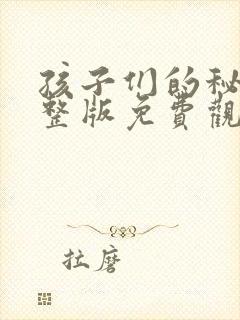 孩子们的秘
整版免費觀
拉磨